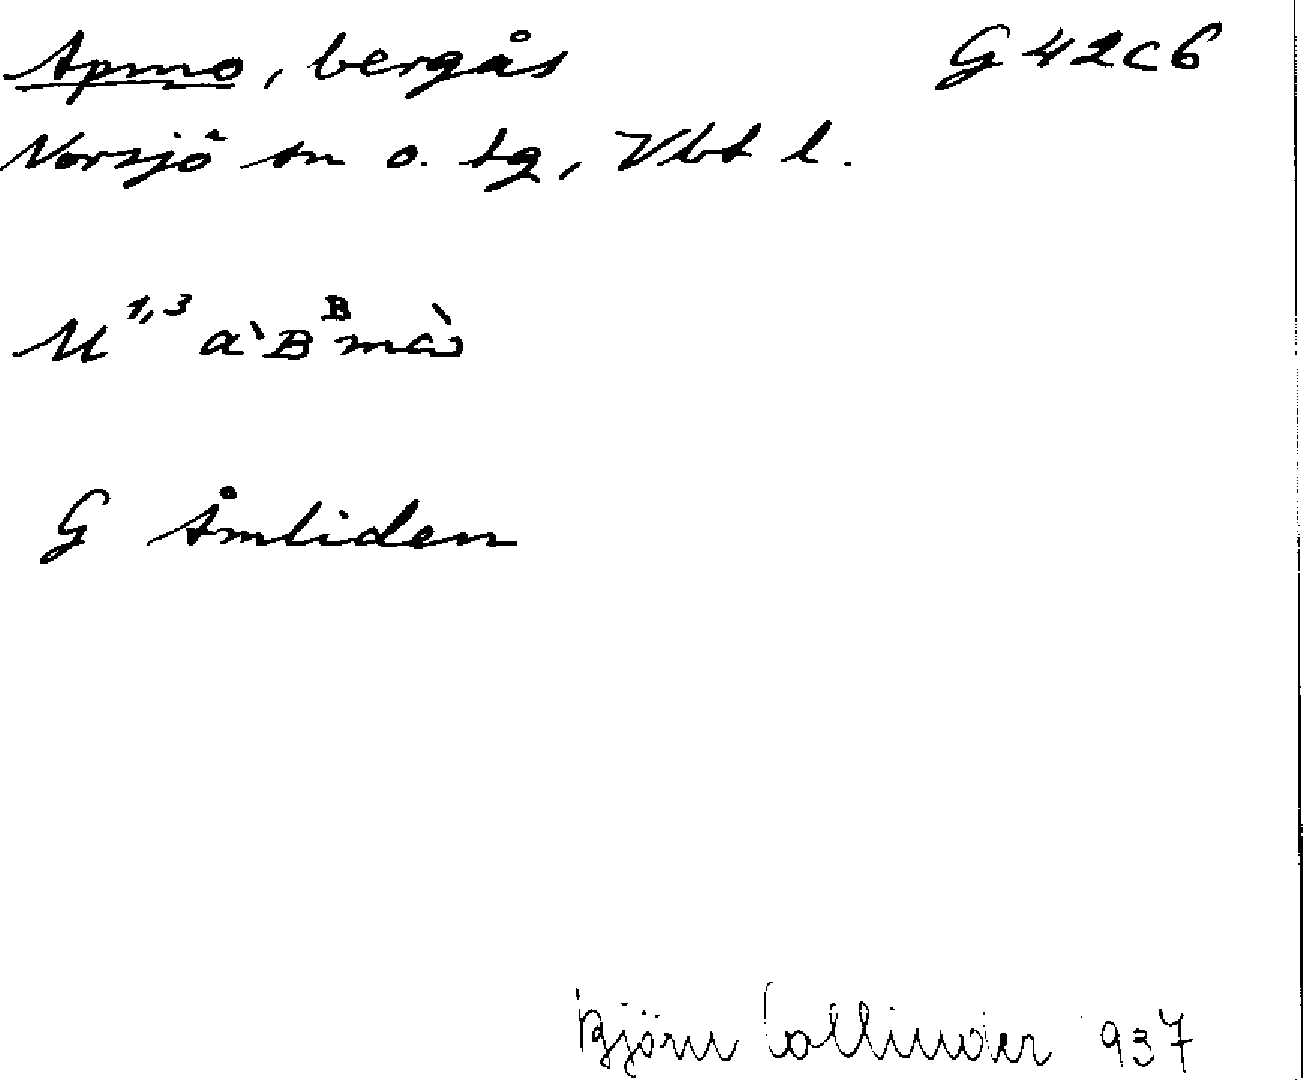 Apmo, bergås G 42 c 6
Norsjö sn o. tg, Vbt l.
M 1,3 a`BᴮmA`
G Åmliden
Björn Collinder 937